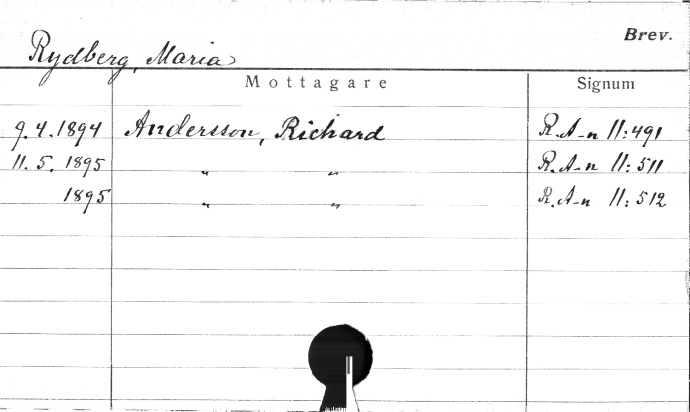 Brev.
Rydberg, Maria
Mottagare Signum
9.4.1894 Andersson, Richard R.A-n II:491
11.5.1895 " " R.A-n II:511
1895 " " R.A-n II:512